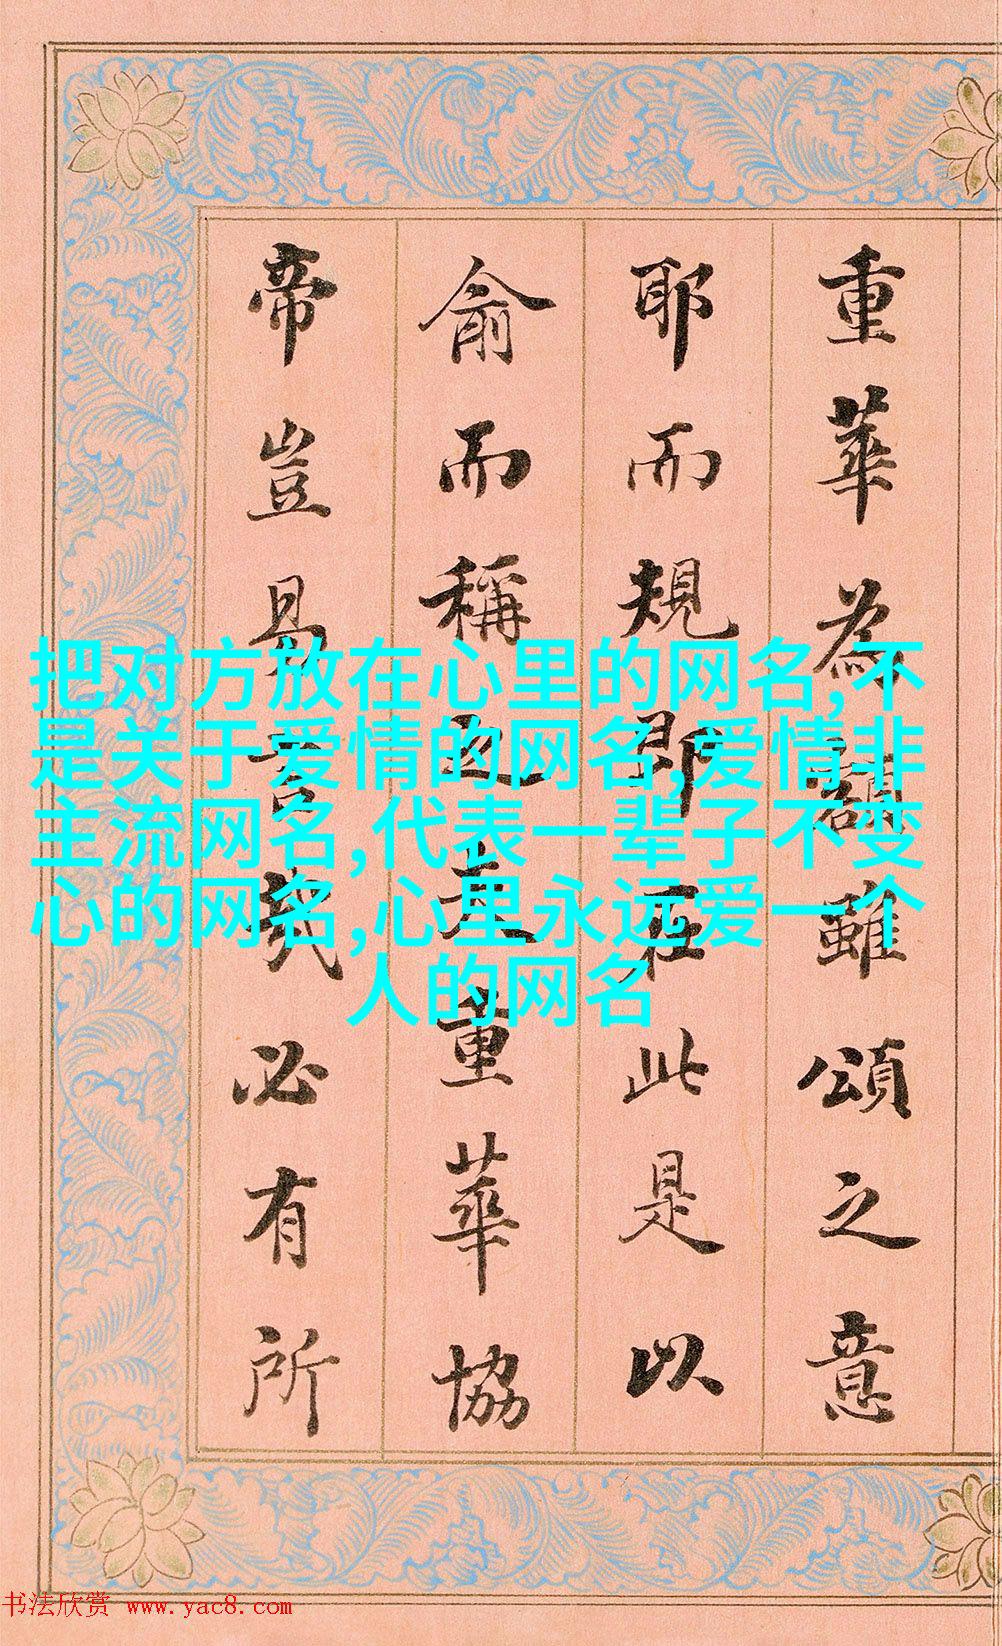 重華為雖頌之意
耶而規即在此是以
俞而稱重華協
帝豈易言哉必有所
把对方放在心里的网名,不
是关于爱情的网名,爱情非
主流网名,代表一辈子不变
心的网名,心里永远爱一个
人的网名
书法欣赏 www.yac8.com